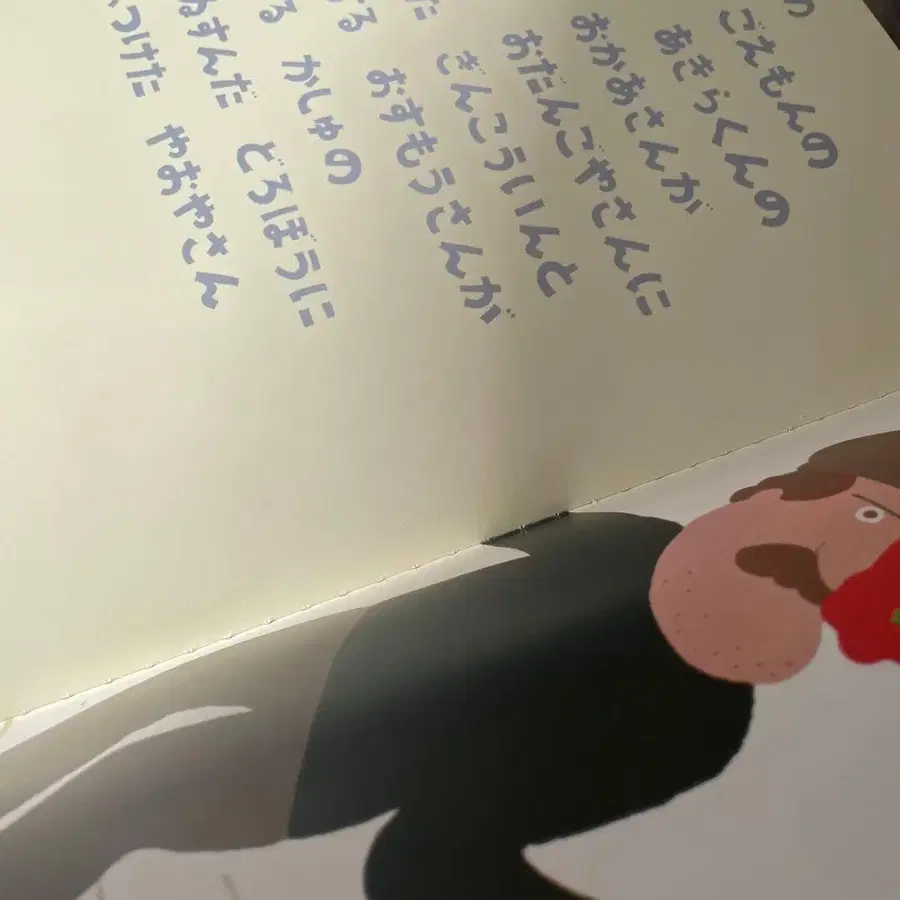 の
ごえもんの
あきらくんの
おかあさんが
おだんごやさんに
た ぎんこういんと
る おすもうさんが
る かしゅの
すんだ どろぼうに
つけた やおやさん